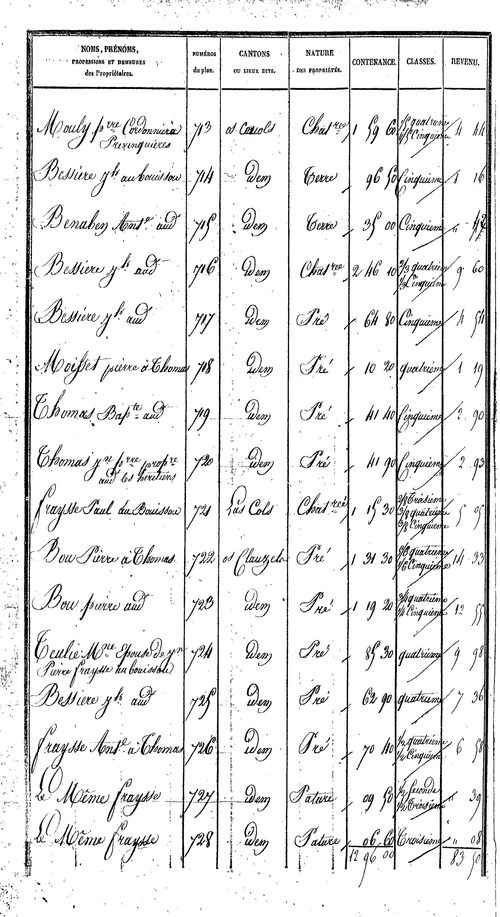 NOMS, PRÉNOMS, PROFESSIONS ET DEMEURES des Propriétaires. NUMÉROS du plan. CANTONS OU LIEUX DITS. NATURE DES PROPRIÉTÉS. CONTENANCE. CLASSES. REVENU.
Mouly pre Cordonnier à Prevenquières 713 Chatrée 1 59 60 quatrieme Cinquieme 4 44
Bessiere jh au bouissou 714 idem Terre 96 50 Cinquieme 1 16
Benaben Ante aud 715 idem Terre 35 00 Cinquieme " 42
Bessiere jh aud 716 idem Chatrée 2 46 10 quatrieme Cinquieme 9 60
Bessière jh aud 717 idem Pré 64 80 Cinquieme 4 54
Moisset pierre à Thomas 718 idem Pré 10 20 quatrieme 1 19
Thomas Bapte aud 719 idem Pré 41 40 Cinquieme 2 90
Thomas jn pre propre aud les heritiers 720 idem Pré 41 90 Cinquieme 2 93
fraysse Paul du Bouissou 721 Las Cols Chatrée 1 15 30 Troisieme quatrieme Cinquieme 5 05
Bou Pierre à Thomas 722 Pré 1 31 30 quatrieme Cinquieme 14 33
Bou pierre aud 723 idem Pré 1 19 20 quatrieme Cinquieme 12 55
Teulié Mne Epouse de jn Pierre fraysse au bouissou 724 idem Pré 85 30 quatrieme 9 98
Bessiere jh aud 725 idem Pré 62 90 quatrieme 7 36
fraysse Ante à Thomas 726 idem Pré 70 40 1/2 quatrieme 1/2 Cinquieme 6 58
Le Même fraysse 727 idem Pature 09 50 1/2 Seconde 1/2 Troisieme " 39
Le Même fraysse 728 idem Pature 06 60 Troisieme " 08
12 96 00 83 50